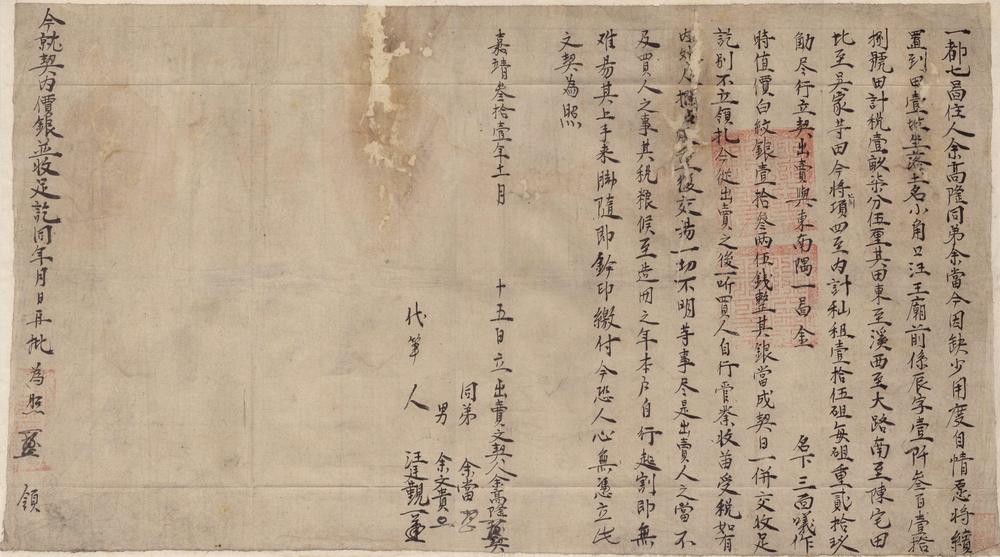 一都七啚住人余高隆同弟余當今因缺少用度自情愿將續
置到田壹坵坐落土名小角口汪王廟前係辰字壹阡叁百壹拾
捌號田計稅壹畝柒分伍厘其田東至溪西至大路南至陳宅田
北至吳家等田今將項四至內計秈租壹拾伍砠每砠重貳拾
觔尽行立契出賣與東南隅一啚金 名下三面議作
時值價白紋銀壹拾叁兩伍錢整其銀當成契日一併交收足
訖別不立領札今從出賣之後一听買人自行管業收苗受稅如有
內外人攔 後交易一切不明等事尽是出賣人之當不
及買人之事其稅粮候至造冊之年本户自行起割即無
难易其上手来脚隨即鈐印繳付今恐人心無憑立此
文契為照
嘉靖叁拾壹年十一月 十五日立出賣文契人余高隆
同弟 余當
男 余文貴
代筆人 汪 觀
今就契內價銀並收足訖同年月日再批為照 領